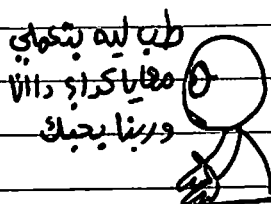 طب ليه بتعملي
معايا كدا؟ دانا
وربنا بحبك